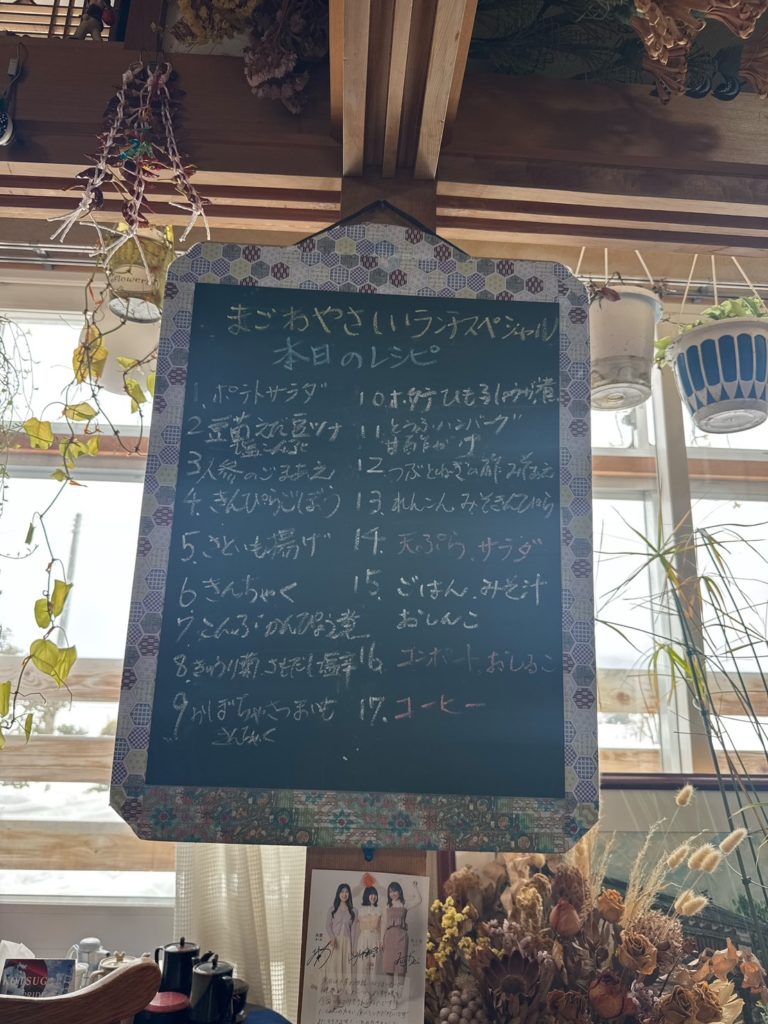 まごわやさしいランチスペシャル
本日のレシピ
1. ポテトサラダ
2 豆苗 枝豆 ツナ
塩こんぶ
3 人参のごまあえ
4. きんぴらごぼう
5. さといも揚げ
6 きんちゃく
7 こんぶ かんぴょう煮
8 きゅうり 菊
9 かぼちゃさつまいも
きんちゃく
10. ホタテひも しょうが煮
11. とうふハンバーグ
甘酢がけ
12. つぶとねぎの酢みそあえ
13. れんこん みそきんぴら
14. 天ぷら. サラダ
15. ごはん. みそ汁
おしんこ
16. コンポート. おしるこ
17. コーヒー
flowers